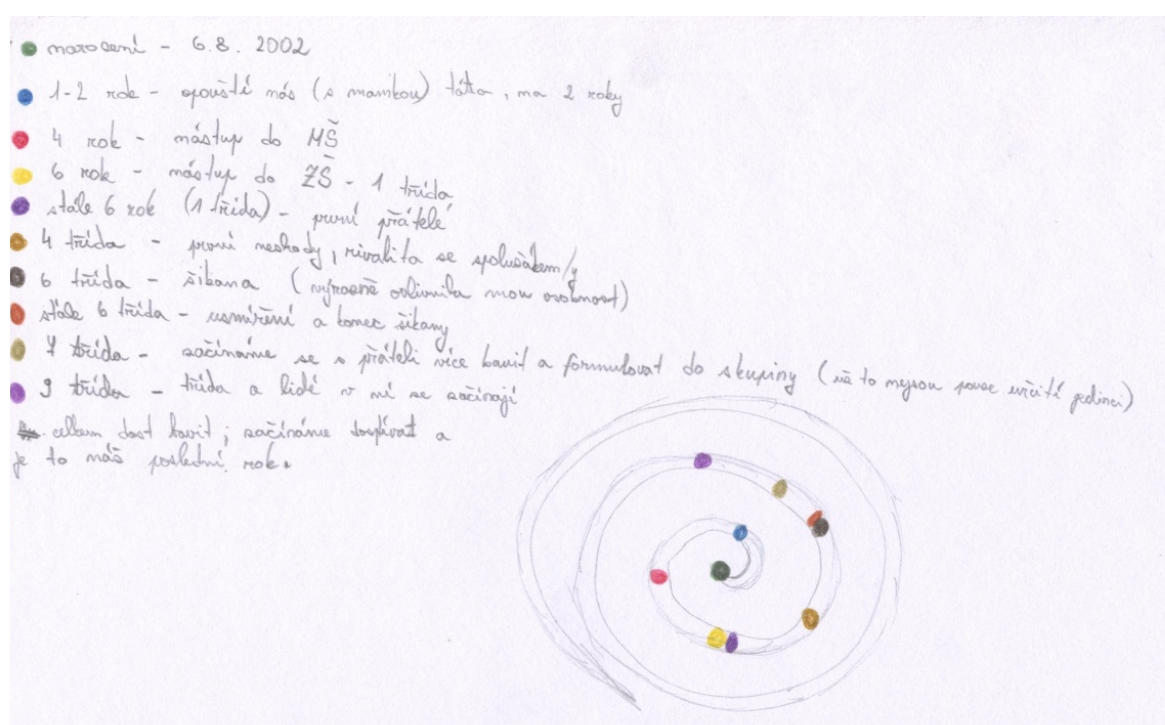 narození - 6.8. 2002
1-2 rok - opouští nás (s mamkou) táta, na 2 roky
4 rok - nástup do MŠ
6 rok - nástup do ZŠ - 1 třída
stále 6 rok (1 třída) - první přátelé
4 třída - první neshody, rivalita se spolužákem/y
6 třída - šikana (výrazně ovlivnila mou osobnost)
stále 6 třída - usmíření a konec šikany
7 třída - začínáme se s přáteli více bavit a formulovat do skupiny (už to nejsou pouze určití jedinci)
9 třída - třída a lidé v ní se začínají
celkem dost bavit; začínáme dospívat a
je to náš poslední rok.